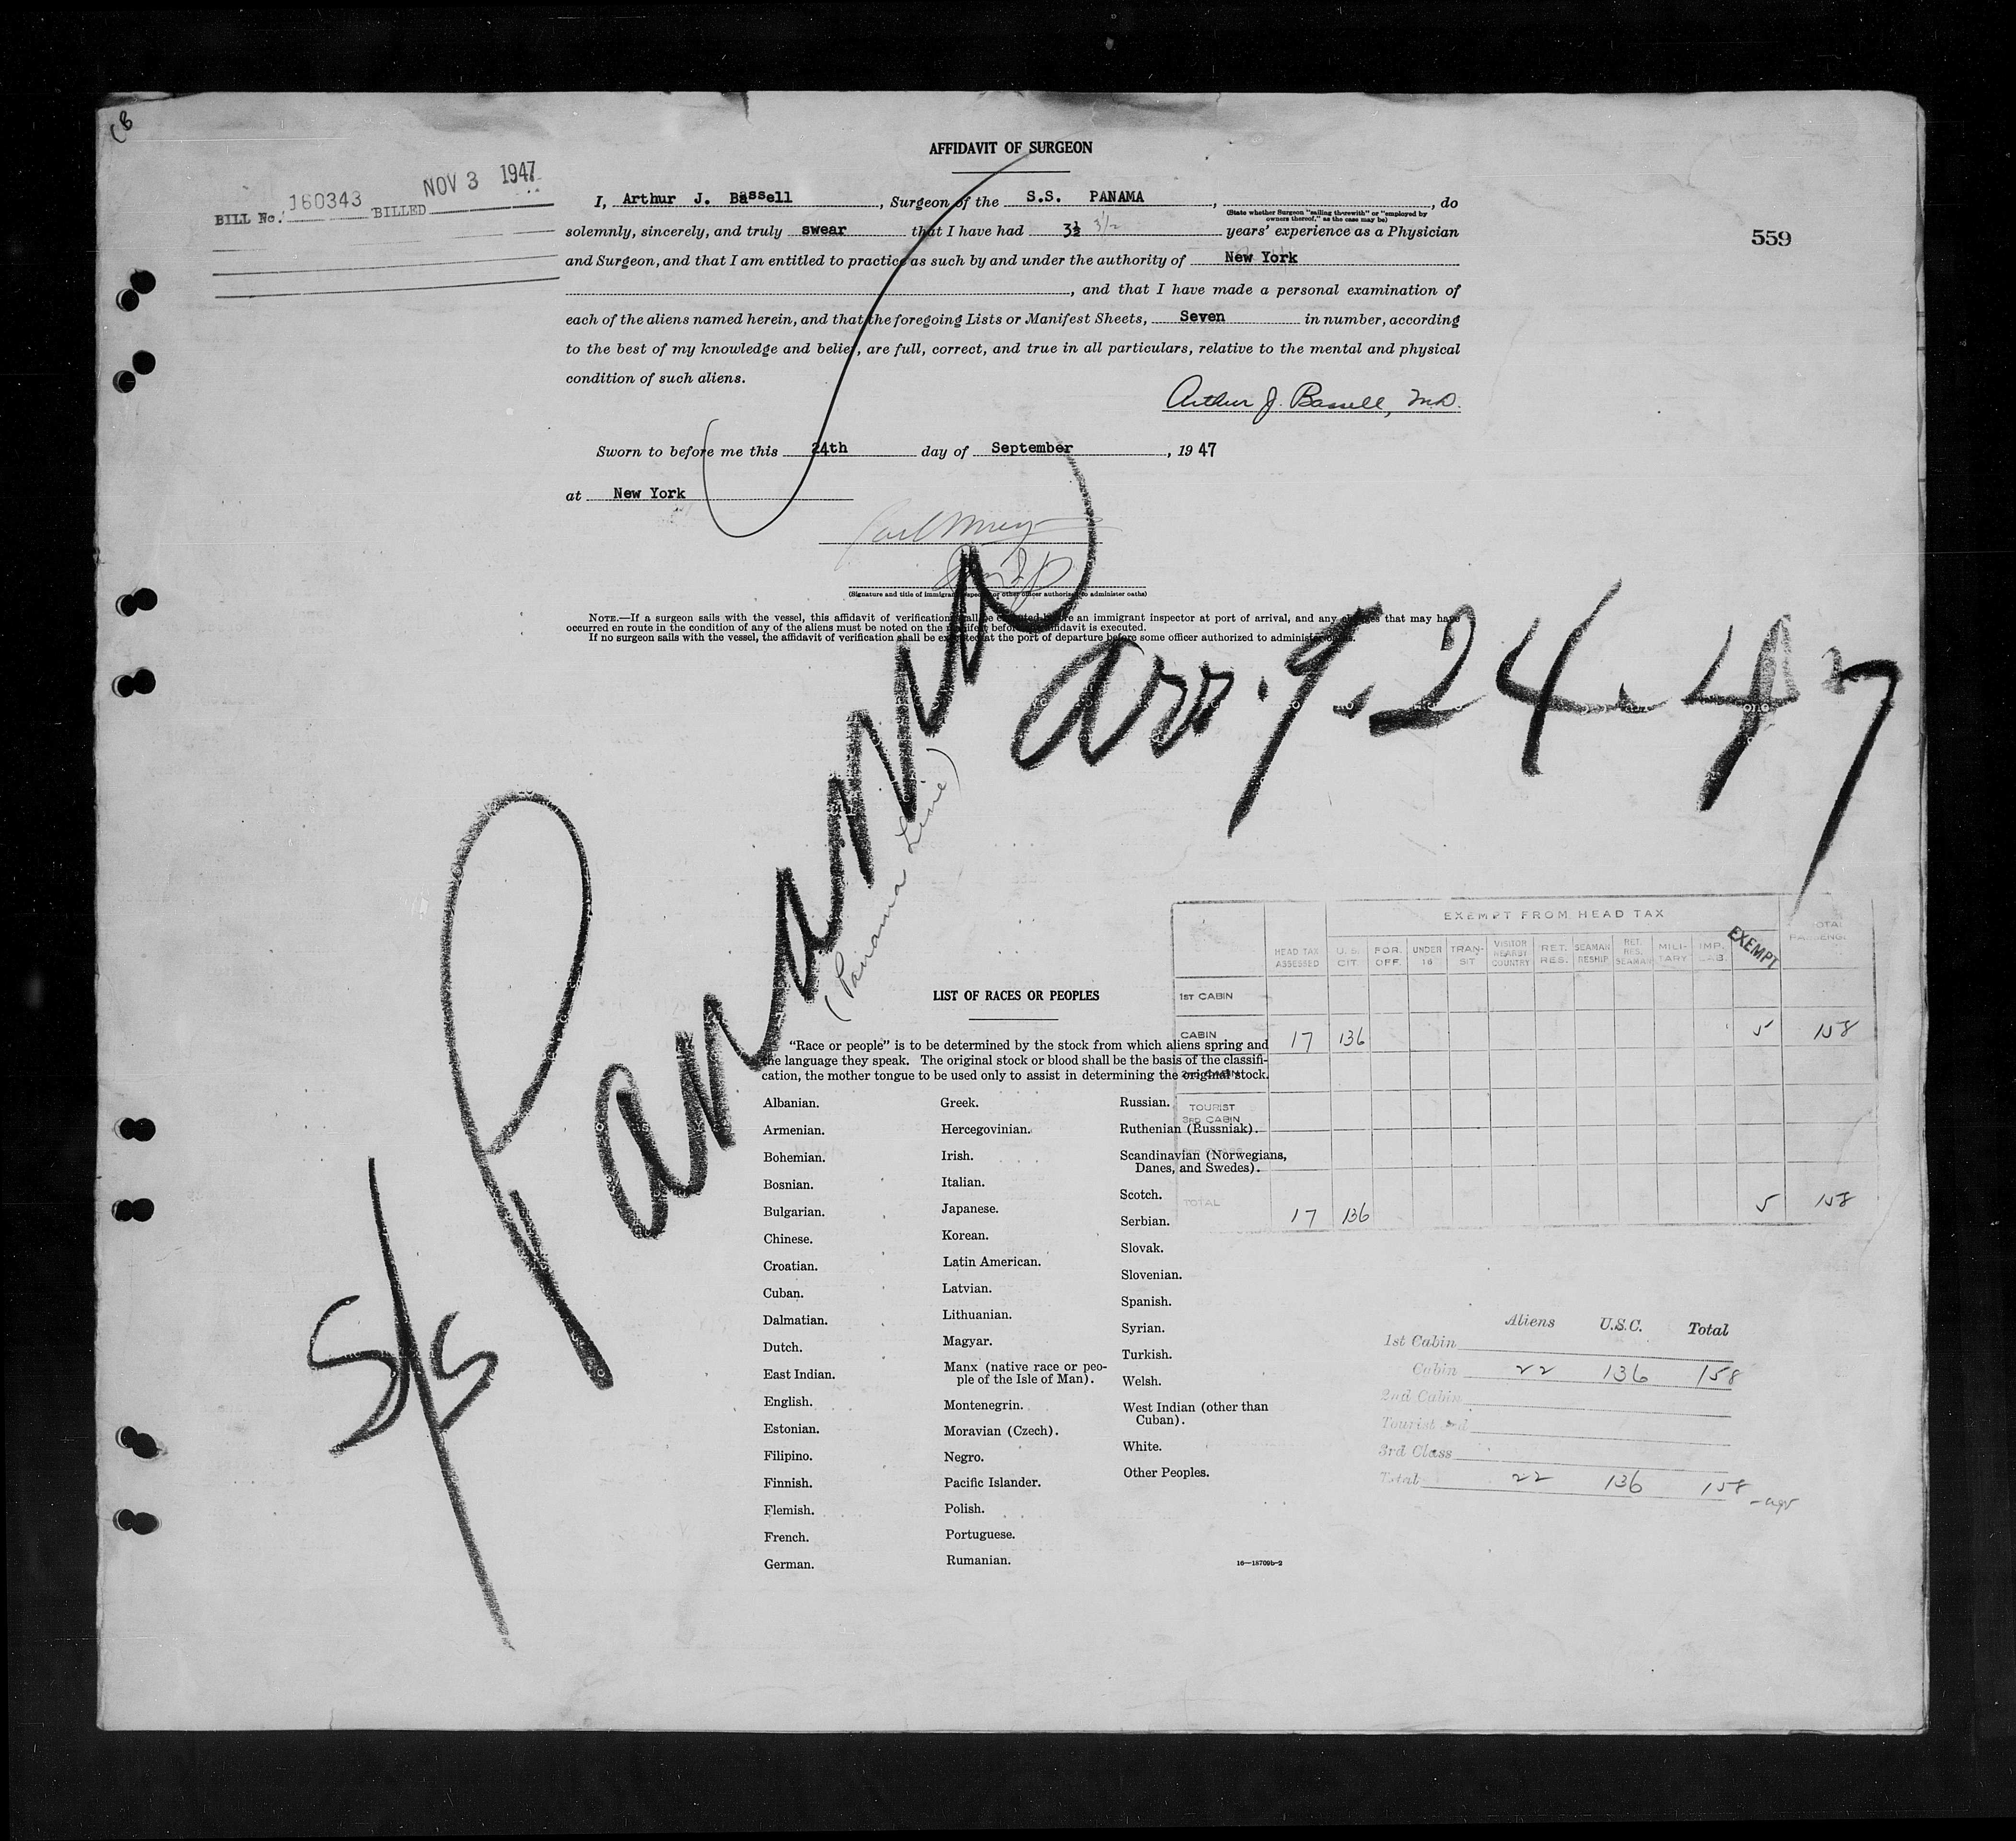 (B
AFFIDAVIT OF SURGEON
BILL No. 160343 BILLED NOV 3 1947
I, Arthur J. Bassell, Surgeon of the S.S. PANAMA, , do
(State whether Surgeon "sailing therewith" or "employed by
owners thereof," as the case may be)
solemnly, sincerely, and truly swear that I have had 3½ 3½ years' experience as a Physician
559
and Surgeon, and that I am entitled to practice as such by and under the authority of New York
, and that I have made a personal examination of
each of the aliens named herein, and that the foregoing Lists or Manifest Sheets, Seven in number, according
to the best of my knowledge and belief, are full, correct, and true in all particulars, relative to the mental and physical
condition of such aliens.
Arthur J. Bassell, M.D.
Sworn to before me this 24th day of September, 1947
at New York
(Signature and title of immigrant inspector or other officer authorized to administer oaths)
NOTE.—If a surgeon sails with the vessel, this affidavit of verification shall be executed before an immigrant inspector at port of arrival, and any changes that may have
occurred en route in the condition of any of the aliens must be noted on the manifest before the affidavit is executed.
If no surgeon sails with the vessel, the affidavit of verification shall be executed at the port of departure before some officer authorized to administer oaths.
S/S Panama arr. 9.24.47
(Panama Line)
EXEMPT FROM HEAD TAX
HEAD TAX ASSESSED U.S. CIT. FOR. OFF. UNDER 16 TRAN-SIT VISITOR NEARBY COUNTRY RET. RES. SEAMAN RESHIP RET. RES. SEAMAN MILI-TARY IMP. LAB. EXEMPT TOTAL PASSENG.
1ST CABIN
CABIN 17 136 5 158
2ND CABIN
TOURIST
3RD CABIN
TOTAL 17 136 5 158
LIST OF RACES OR PEOPLES
"Race or people" is to be determined by the stock from which aliens spring and
the language they speak. The original stock or blood shall be the basis of the classifi-
cation, the mother tongue to be used only to assist in determining the original stock.
Albanian.
Armenian.
Bohemian.
Bosnian.
Bulgarian.
Chinese.
Croatian.
Cuban.
Dalmatian.
Dutch.
East Indian.
English.
Estonian.
Filipino.
Finnish.
Flemish.
French.
German.
Greek.
Hercegovinian.
Irish.
Italian.
Japanese.
Korean.
Latin American.
Latvian.
Lithuanian.
Magyar.
Manx (native race or peo-
ple of the Isle of Man).
Montenegrin.
Moravian (Czech).
Negro.
Pacific Islander.
Polish.
Portuguese.
Rumanian.
Russian.
Ruthenian (Russniak).
Scandinavian (Norwegians,
Danes, and Swedes).
Scotch.
Serbian.
Slovak.
Slovenian.
Spanish.
Syrian.
Turkish.
Welsh.
West Indian (other than
Cuban).
White.
Other Peoples.
16—18709b-2
Aliens U.S.C. Total
1st Cabin
Cabin 22 136 158
2nd Cabin
Tourist 3rd
3rd Class
Total 22 136 158